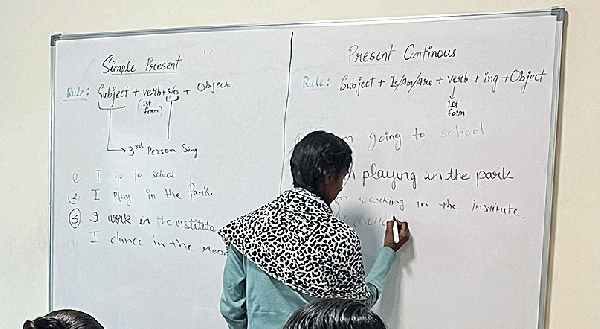 Simple Present
Rule: Subject + verb + s/es + Object
(1st form)
3rd Person Sing
① I go to school
② I play in the Park
③ I work in the institute
I dance in the
Present Continous
Rule: Subject + Is/am/are + verb + ing + Object
1st form
going to school
playing in the park
working in the institute